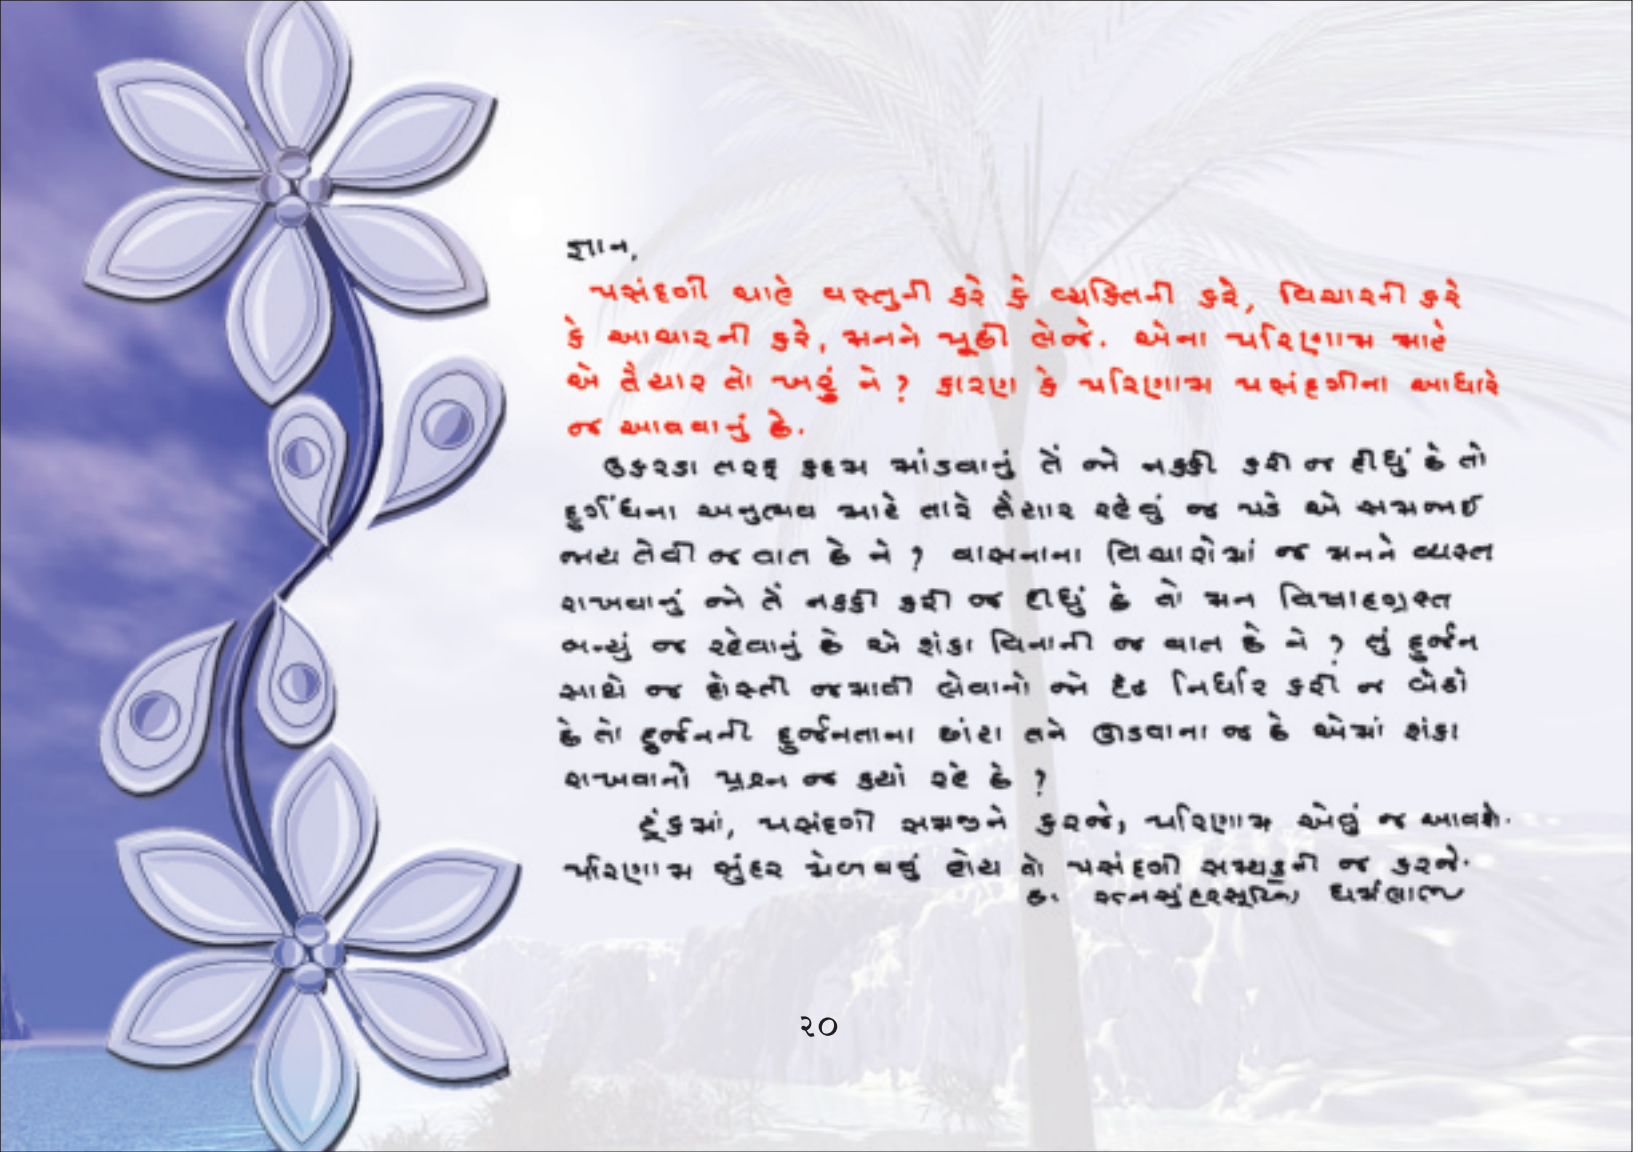 જ્ઞાન,
પસંદગી ચાહે વસ્તુની કરે કે વ્યક્તિની કરે, વિચારની કરે
કે આચારની કરે, મનને પૂછી લેજે. એના પરિણામ માટે
એ તૈયાર તો ખરું ને ? કારણ કે પરિણામ પસંદગીના આધારે
જ આવવાનું છે.
ઉકરડા તરફ કદમ માંડવાનું તેં જો નક્કી કરી જ દીધું છે તો
દુર્ગંધના અનુભવ માટે તારે તૈયાર રહેવું જ પડે એ સમજાઈ
જાય તેવી જ વાત છે ને ? વાસનાના વિચારોમાં જ મનને વ્યસ્ત
રાખવાનું જો તેં નક્કી કરી જ દીધું છે તો મન વિષાદગ્રસ્ત
બન્યું જ રહેવાનું છે એ શંકા વિનાની જ વાત છે ને ? તું દુર્જન
સાથે જ દોસ્તી જમાવી લેવાનો જો દૃઢ નિર્ધાર કરી જ બેઠો
છે તો દુર્જનની દુર્જનતાના છાંટા તને ઊડવાના જ છે એમાં શંકા
રાખવાનો પ્રશ્ન જ ક્યાં રહે છે ?
ટૂંકમાં, પસંદગી સમજીને કરજે, પરિણામ એવું જ આવશે.
પરિણામ સુંદર મેળવવું હોય તો પસંદગી સમ્યક્‌ની જ કરજે.
દ. રત્નસુંદરસૂરિના ધર્મલાભ
૨૦